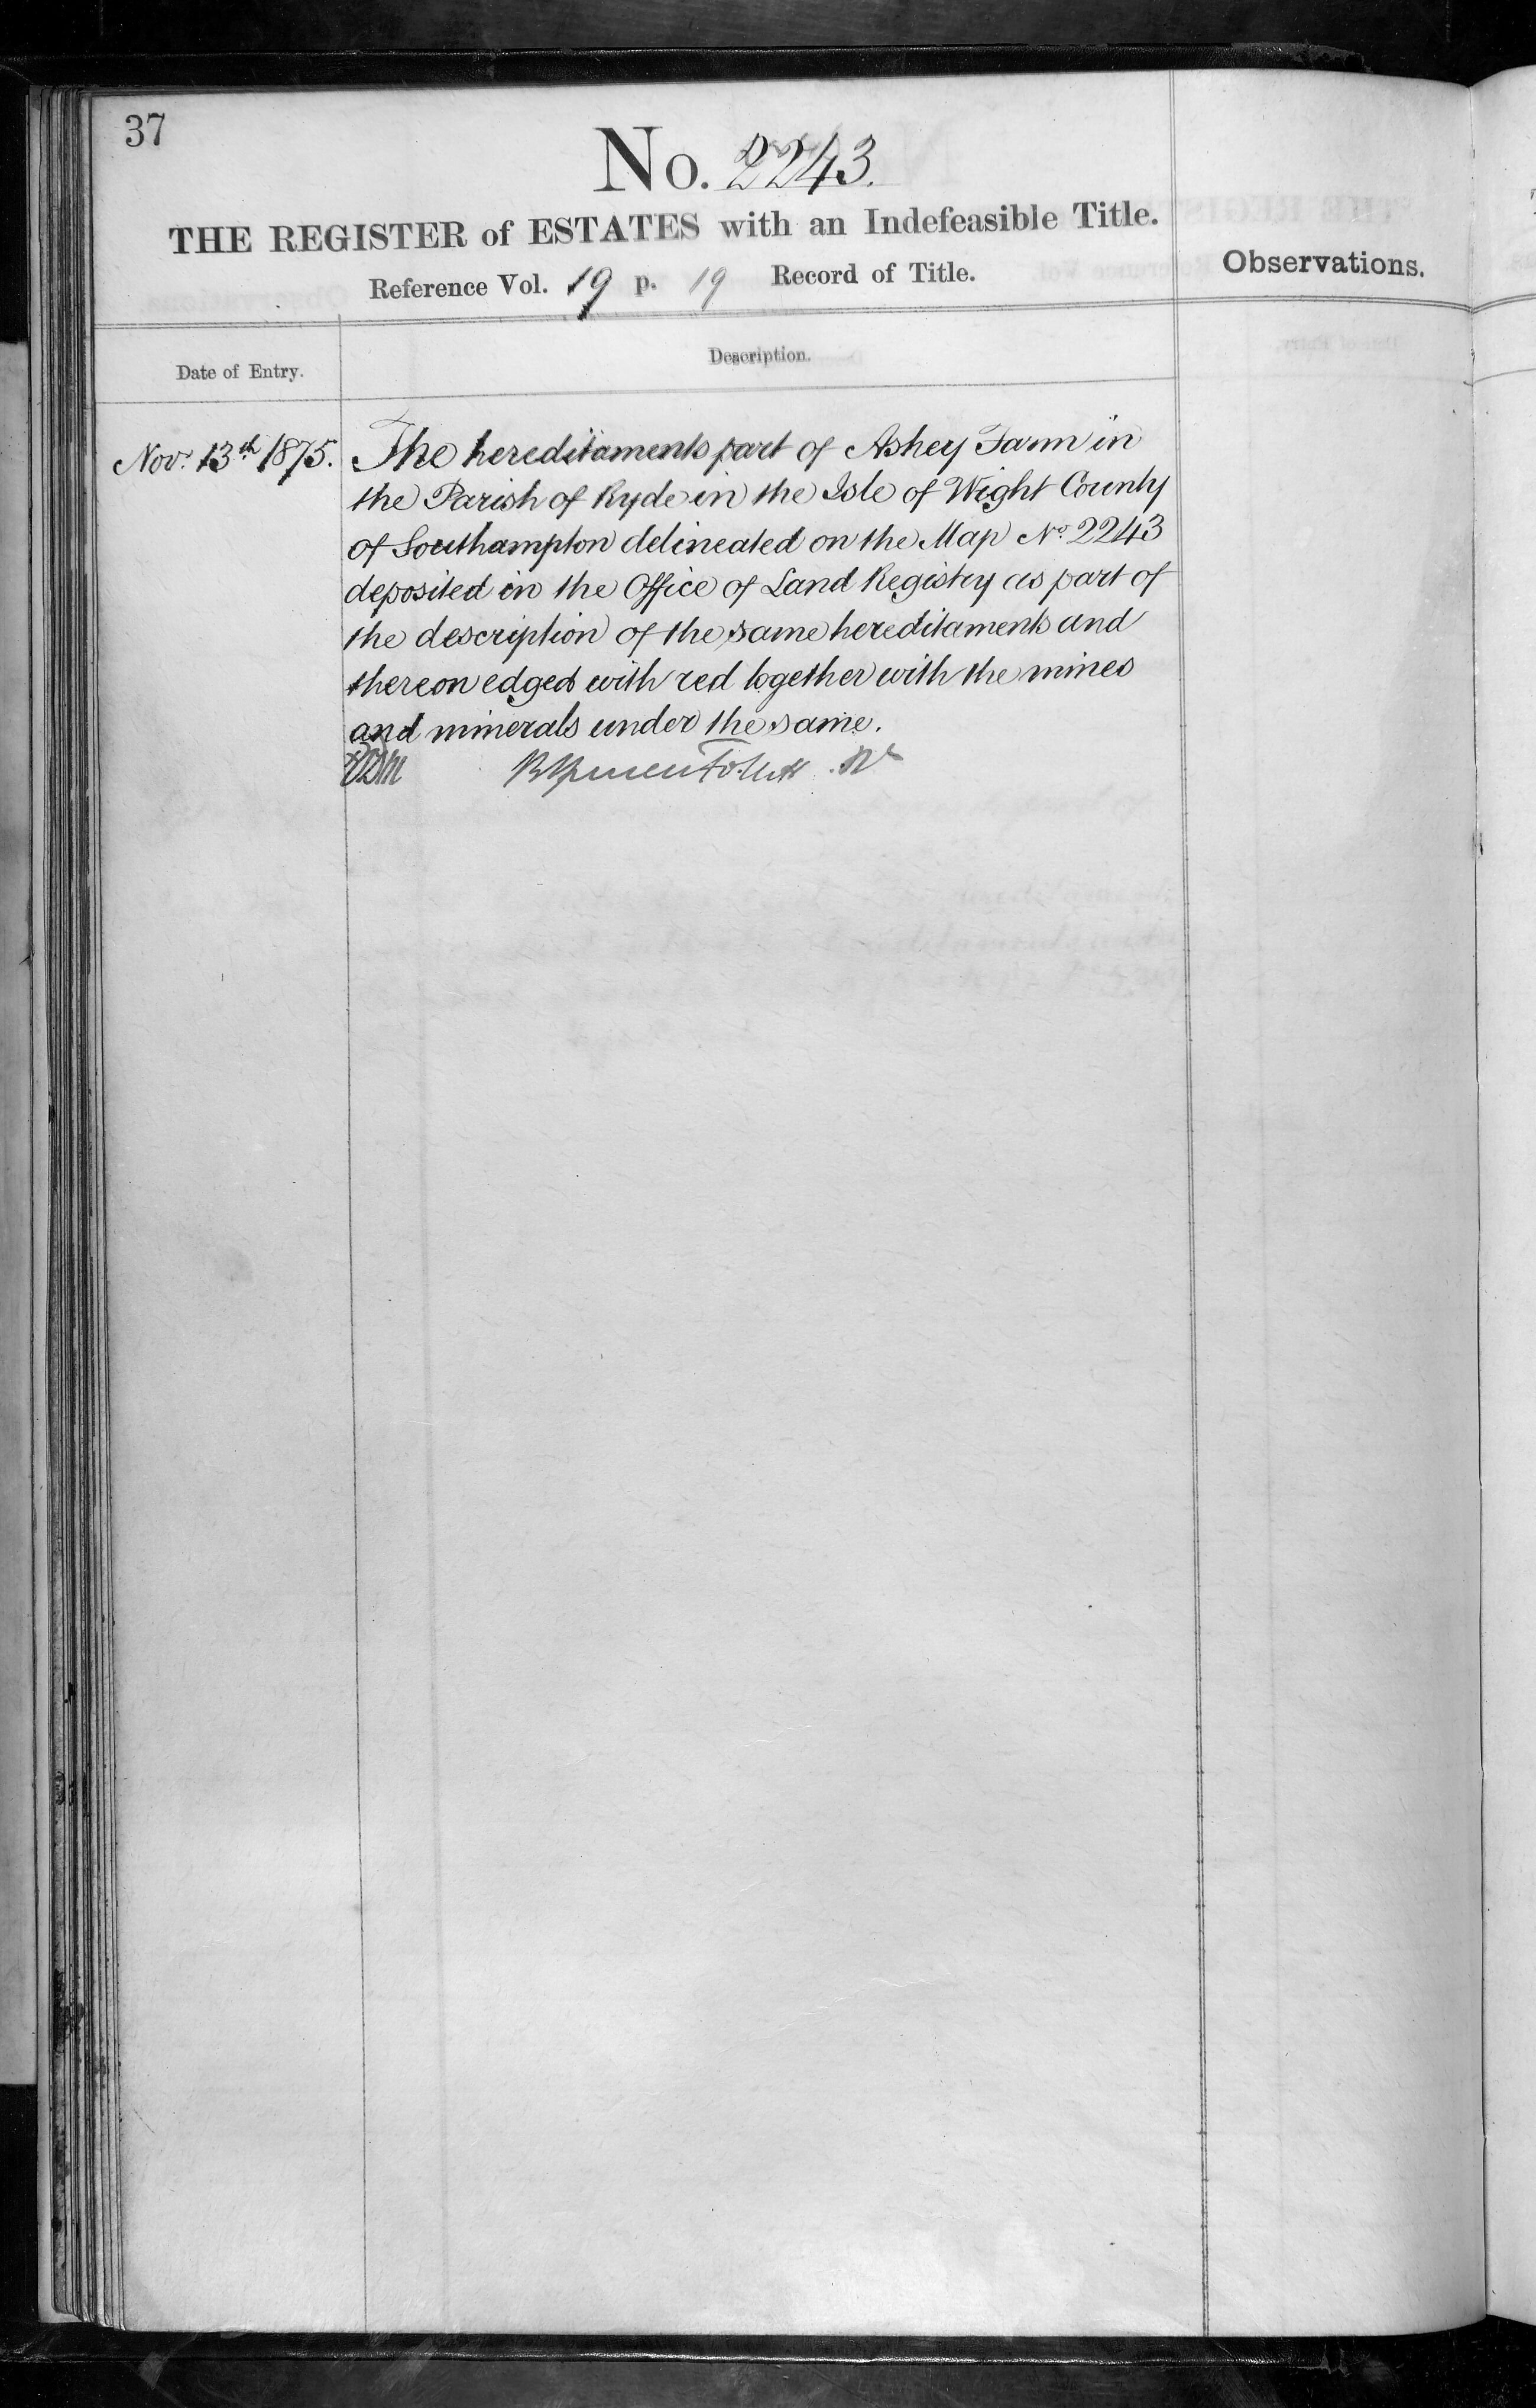 37
No. 2243.
THE REGISTER of ESTATES with an Indefeasible Title.
Reference Vol. 19 p. 19 Record of Title.
Observations.
Date of Entry.
Description.
Nov. 13th 1875.
The hereditaments part of Ashey Farm in
the Parish of Ryde in the Isle of Wight County
of Southampton delineated on the Map No. 2243
deposited in the Office of Land Registry as part of
the description of the same hereditaments and
thereon edged with red together with the mines
and minerals under the same.